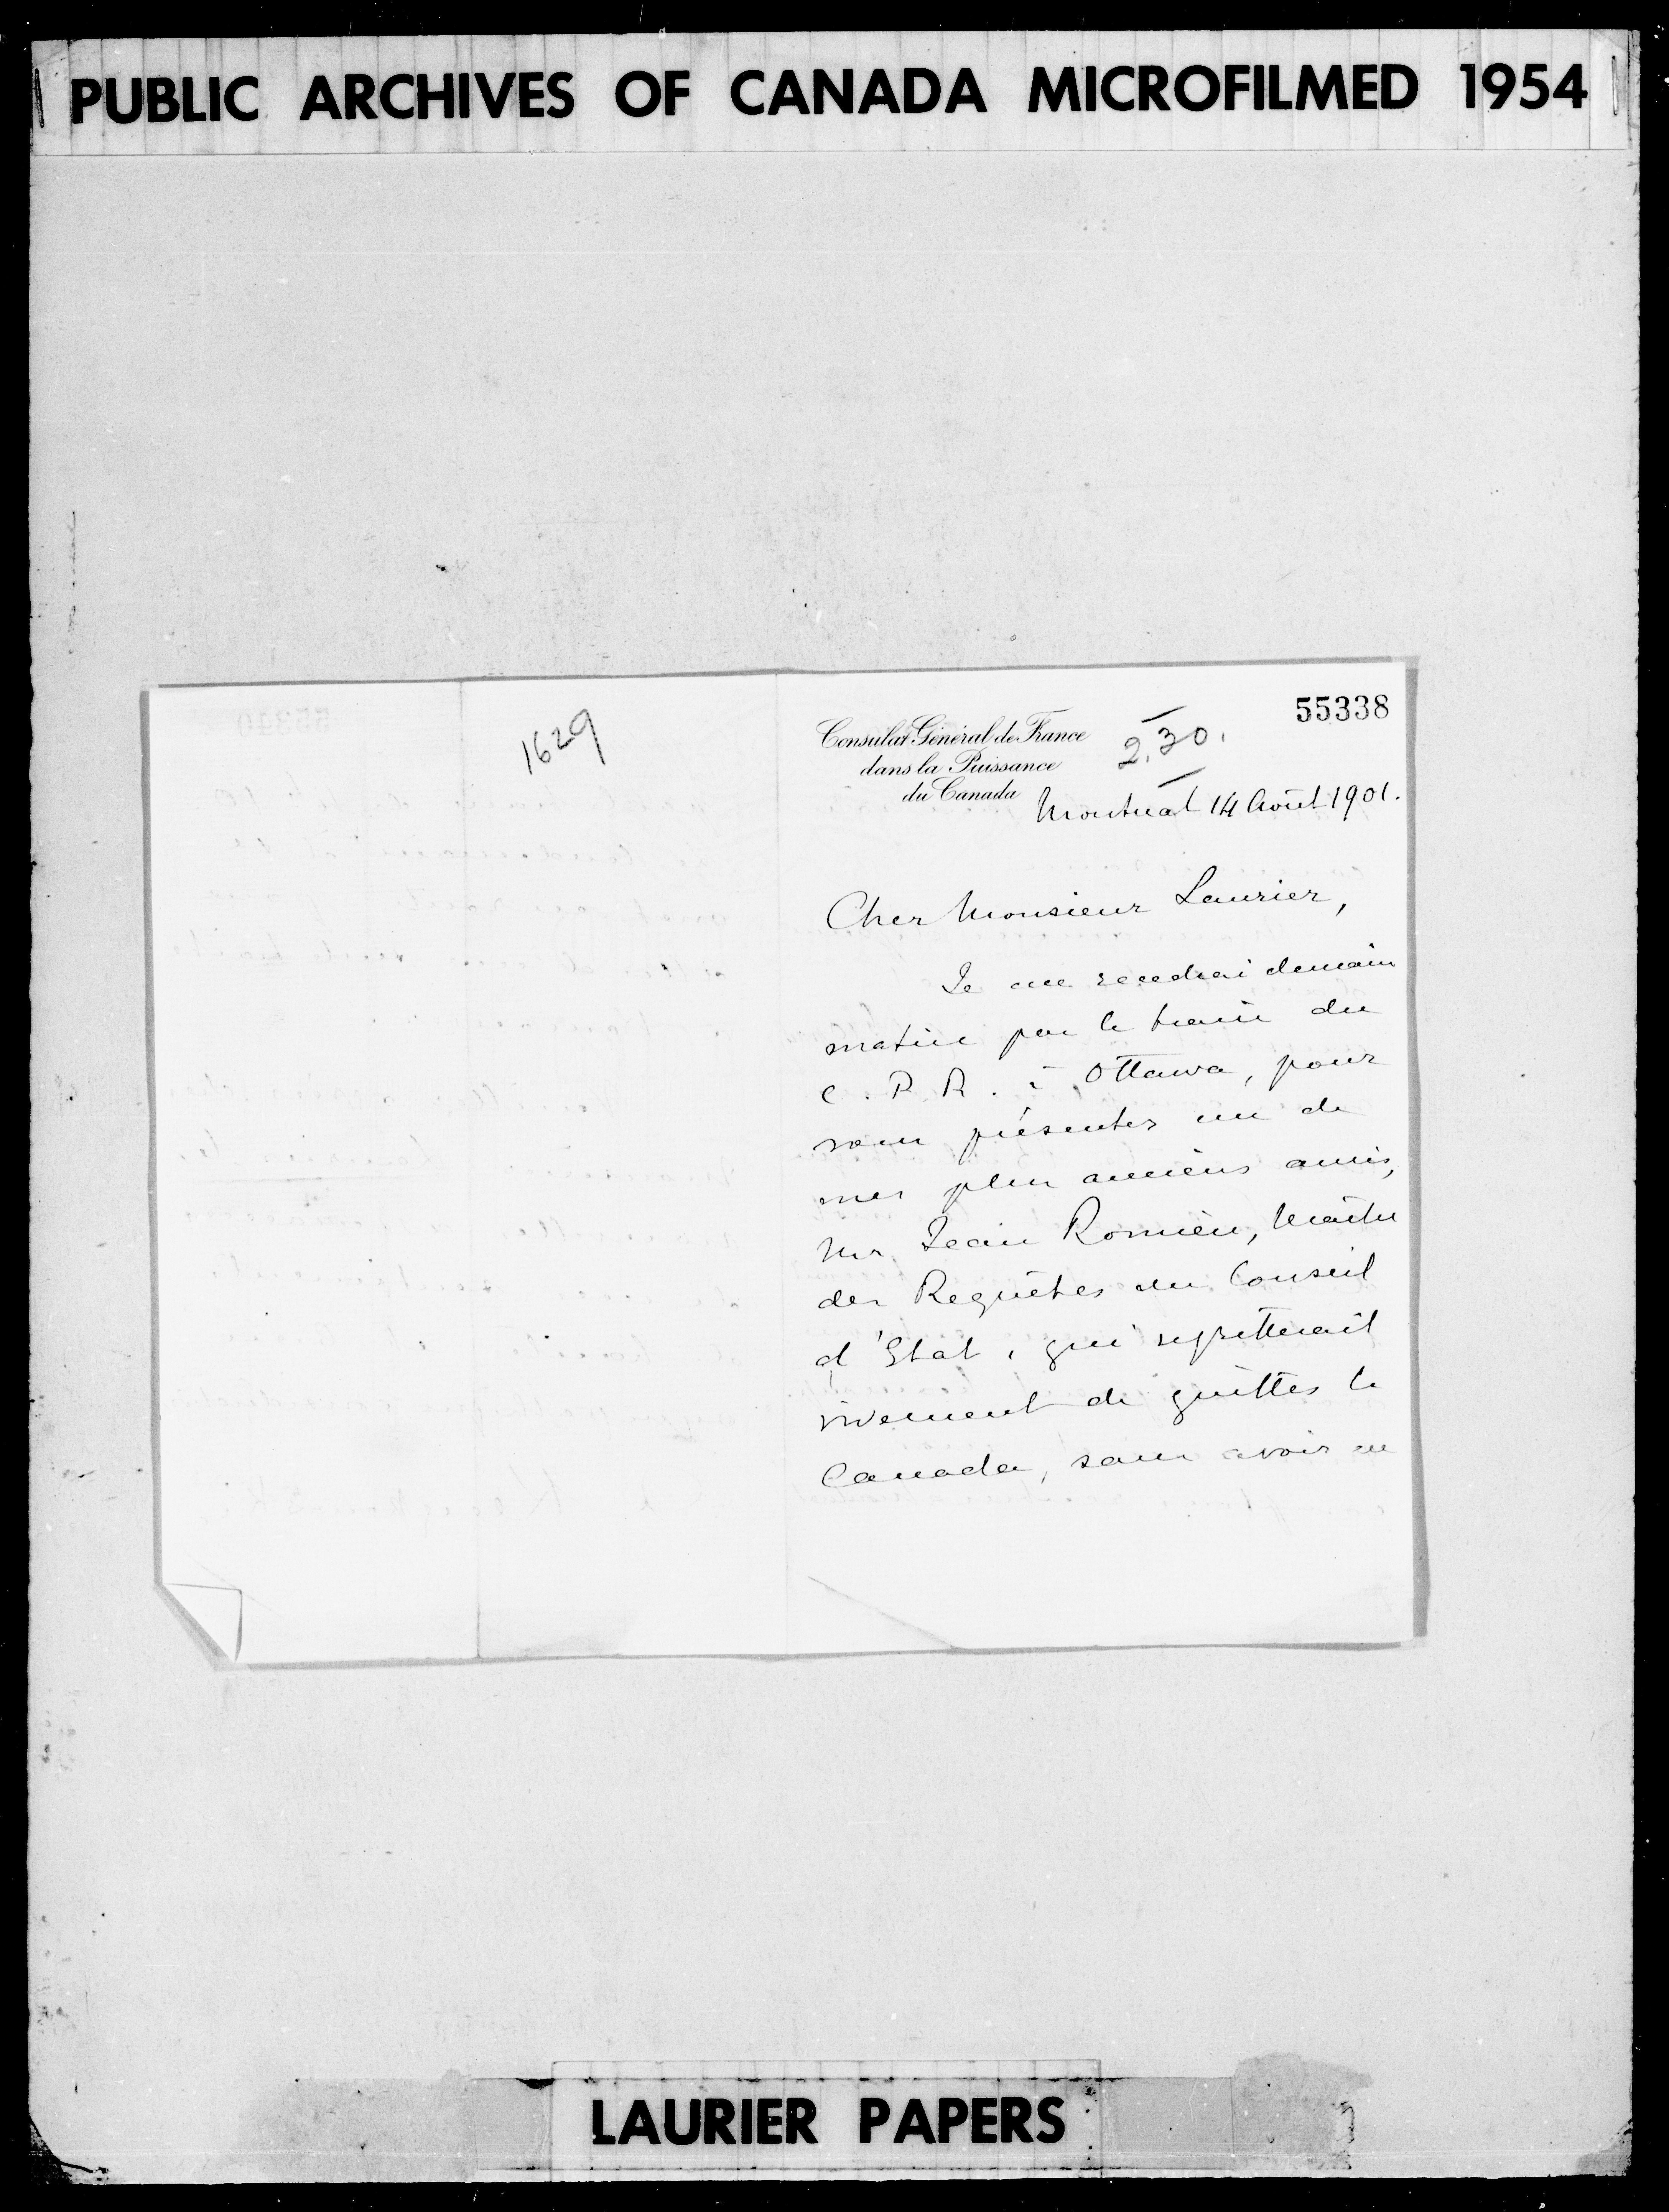 PUBLIC ARCHIVES OF CANADA MICROFILMED 1954
1629
55338
Consulat Général de France
dans la Puissance
du Canada
2.30.
Montreal 14 Août 1901.
Cher Monsieur Laurier,
Je me rendrai demain
matin par le train du
C.P.R. à Ottawa, pour
vous présenter un de
mes plus anciens amis,
Mr Jean Romieu, Maître
des Requêtes au Conseil
d'Etat, qui regretterait
vivement de quitter le
Canada, sans avoir eu
LAURIER PAPERS